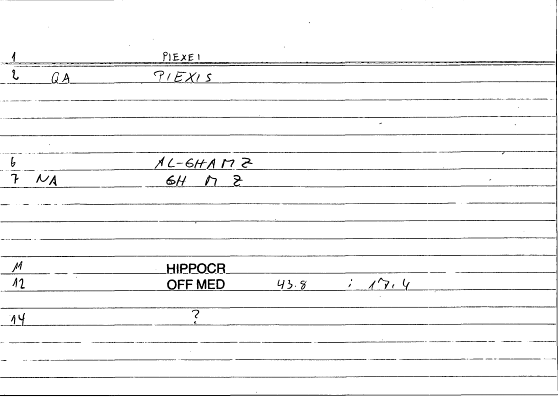 1 PIEXEI
2 QA PIEXIS
6 AL-GHAMZ
7 NA GH M Z
11 HIPPOCR
12 OFF MED 43.8 : 17.4
14 ?